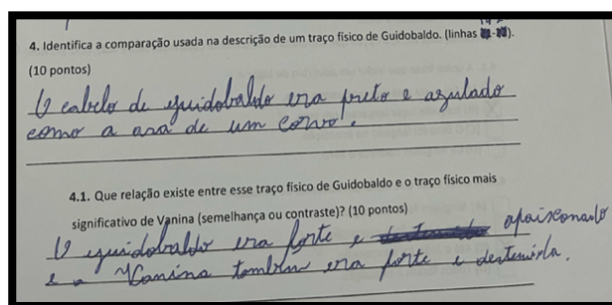 4. Identifica a comparação usada na descrição de um traço físico de Guidobaldo. (linhas
(10 pontos)
O cabelo de guidobaldo era preto e azulado
como a asa de um corvo.
4.1. Que relação existe entre esse traço físico de Guidobaldo e o traço físico mais
significativo de Vanina (semelhança ou contraste)? (10 pontos)
O guidobaldo era forte e apaixonado
e a Vanina também era forte e destemida.